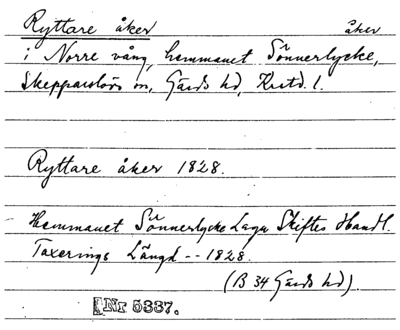 Ryttare åker åker
i Norre vång, hemmanet Sönnerlycke,
Skepparslövs sn, Gärds hd, Kristd. l.
Ryttare åker 1828.
Hemmanet Sönnerlycke Laga Skiftes Handl.
Taxerings Längd -- 1828.
(B 34 Gärds hd).
Nr 5337.